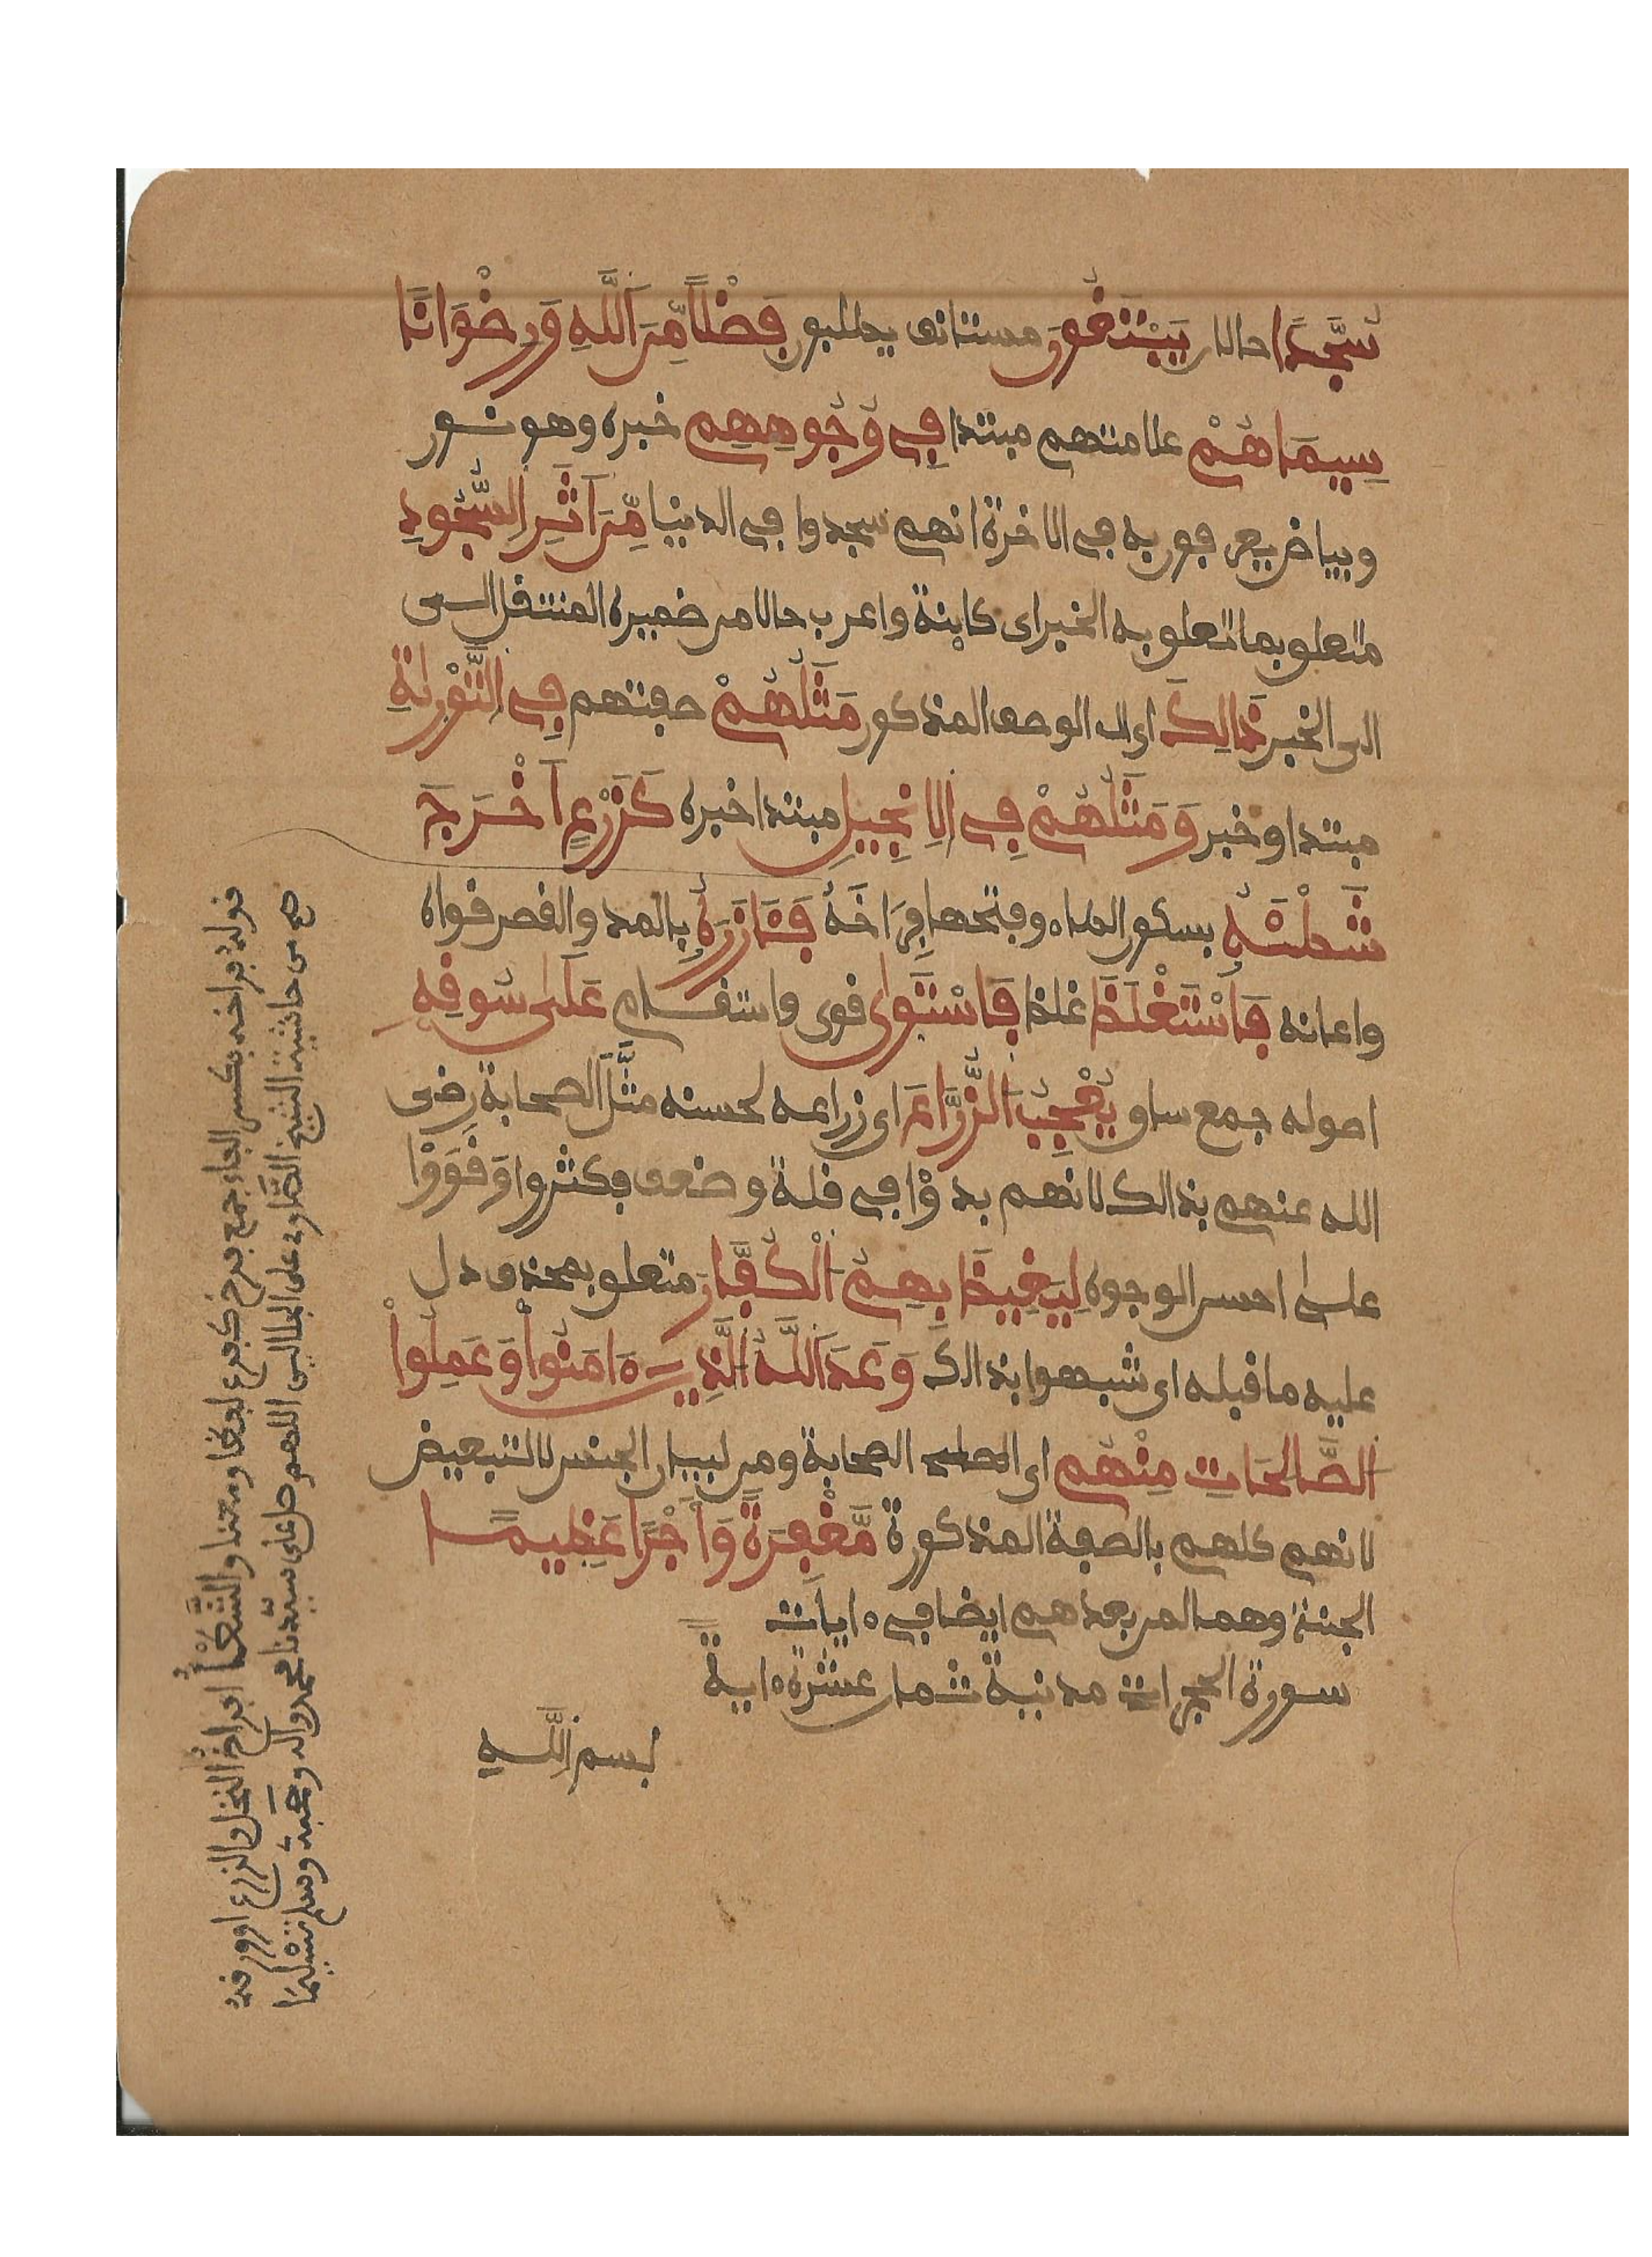 سُجَّدًا حالان يَبْتَغُونَ مستانف يطلبون فَضْلًا مِّنَ اَللَّهِ وَرِضْوَانًا
سِيمَاهُمْ علامتهم مبتدا فِي وُجُوهِهِم خبره وهو نور
وبياض يعرفون به في الاخرة انهم سجدوا في الدنيا مِّنَ اَثَرِ اِلسُّجُودِ
متعلق بما تعلق به الخبر اى كاينة واعرب حالا من ضميره المنتقل
الى الخبر ذَالِكَ اى الوصف المذكور مَثَلُهُمْ صفتهم فِي اِلتَّوْرَىٰةِ
مبتدا وخبر وَمَثَلُهُمْ فِي اِلاِنجِيلِ مبتدا خبره كَزَرْعٍ اَخْرَجَ
شَطْئَهُ بسكون الطاء وفتحها فِرَاخَهُ فَـَٔازَرَهُ بالمد والقصر قواه
واعانه فَاسْتَغْلَظَ غلظ فَاسْتَوَىٰ قوى واستقام عَلَىٰ سُوقِهِ
اصوله جمع ساق يُعْجِبُ اُلزُّرَّاعَ اى زراعه لحسنه مَثَّلَ الصحابة رضى
الله عنهم بذالك لانهم بدؤا في قلة وضعف فكثروا وقووا
على احسن الوجوه لِيَغِيظَ بِهِمُ اُلْكُفَّارَ متعلق بمحذوف دل
عليه ما قبله اى شبهوا بذالك وَعَدَ اَللَّهُ اُلَّذِينَ ءَامَنُوا وَعَمِلُوا
اُلصَّالِحَاتِ مِنْهُم اى الصحابة ومن لبيان الجنس لا للتبعيض
لانهم كلهم بالصفة المذكورة مَّغْفِرَةً وَأَجْرًا عَظِيمًا
الجنة وهما لمن بعدهم ايضا في ءايات
سورة الحجرات مدنية ثمان عشرة ءاية
بسم اللَّه
قوله فراخه بكسر الفاء جمع فرخ كفرع لفظا ومعنا والشَّطْأُ افراخ النخل والزرع او ورقه
صح من حاشية الشيخ الصَّاوى على الجلالين اللهم صل على سيّدنا محمد واله وصحبه وسلم تسليما